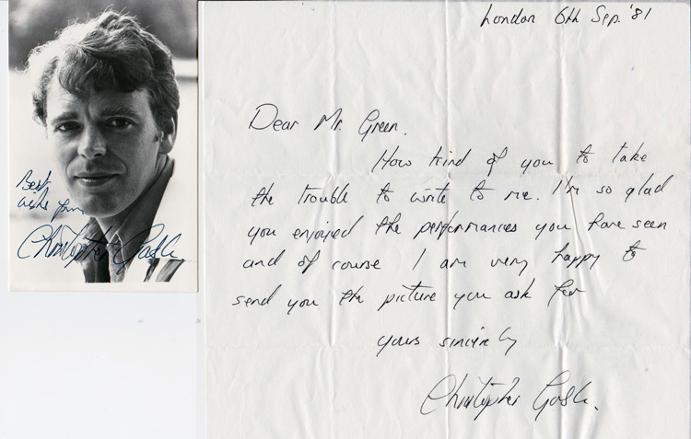 Best
wishes from
Christopher Gable
London 6th Sep. '81
Dear Mr. Green.
How kind of you to take
the trouble to write to me. I'm so glad
you enjoyed the performances you have seen
and of course I am very happy to
send you the picture you ask for
yours sincerely
Christopher Gable.